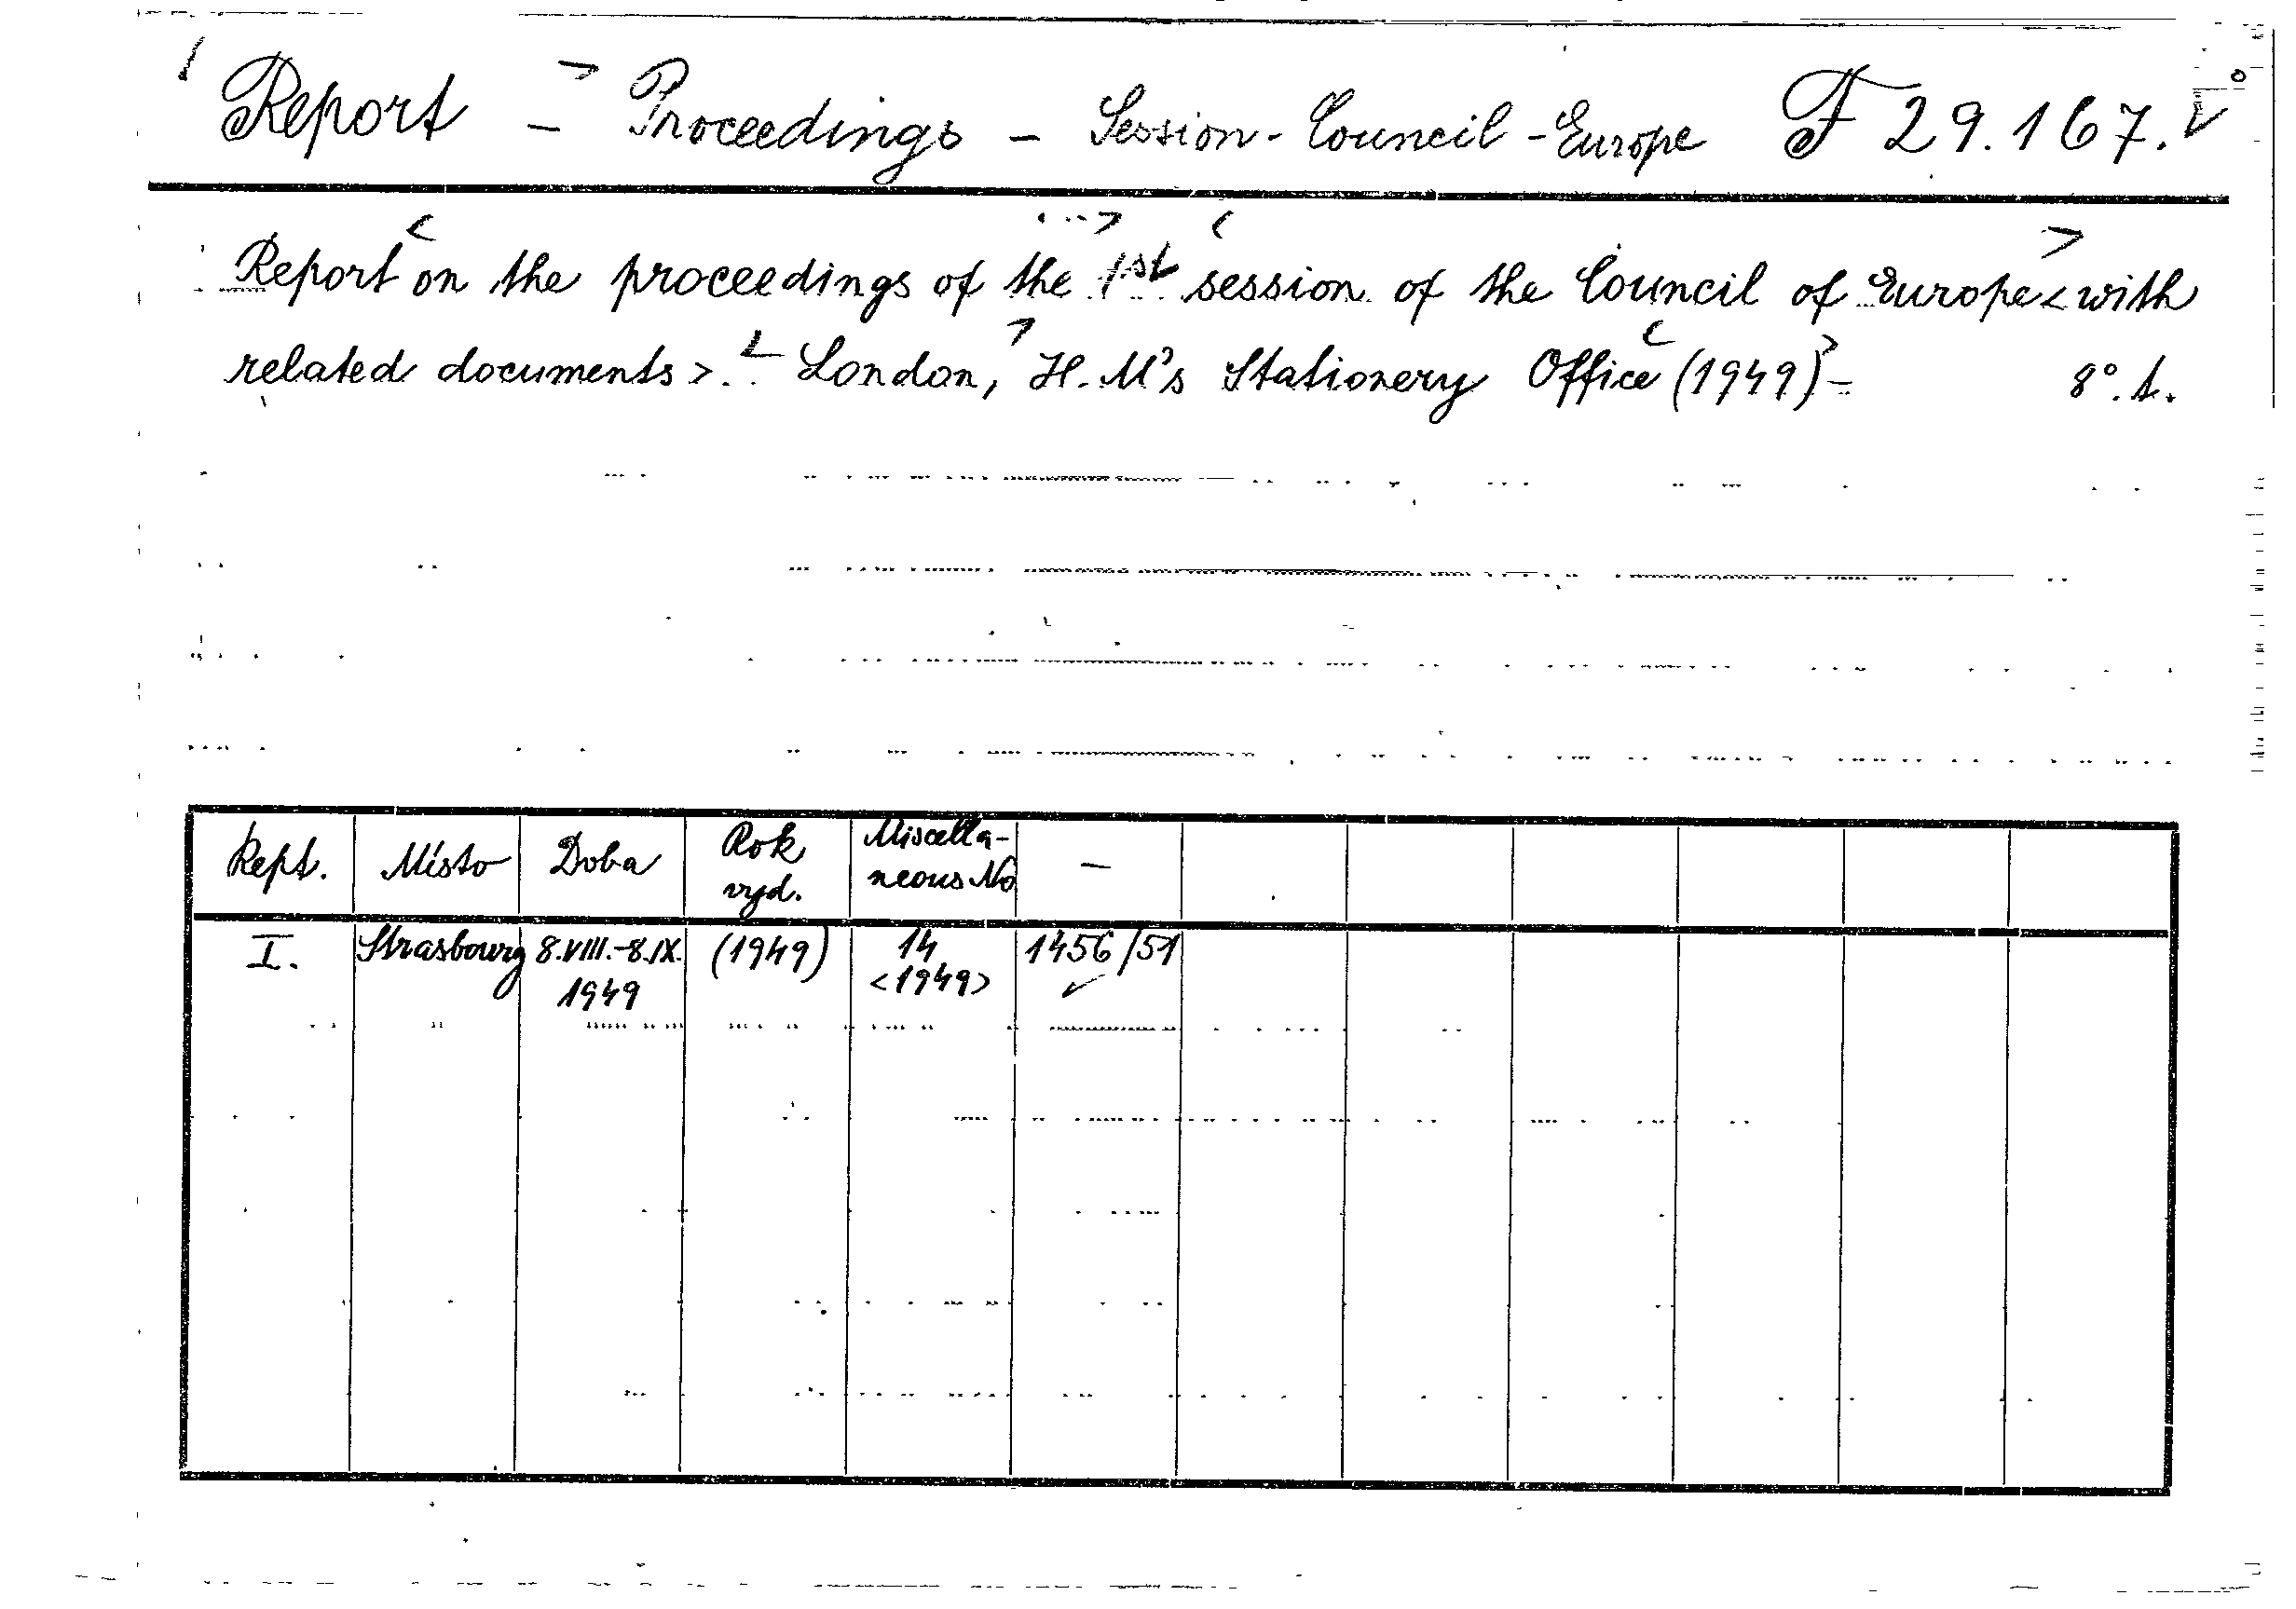 Report - Proceedings - Session - Council - Europe F 29.167.
Report on the proceedings of the 1st session of the Council of Europe < with
related documents >. - London, H. M's Stationery Office (1949) - 8°. t.
Rept. Místo Doba Rok vyd. Miscellaneous No —
I. Strasbourg 8.VIII.-8.IX. 1949 (1949) 14 <1949> 1456/51